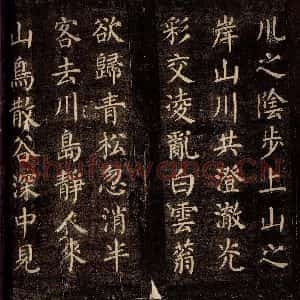 川之陰步上山之
岸山川共登澈光
彩交凌亂白雲蓊
欲歸青松忽消半
客去川島靜人來
山鳥散谷深中見